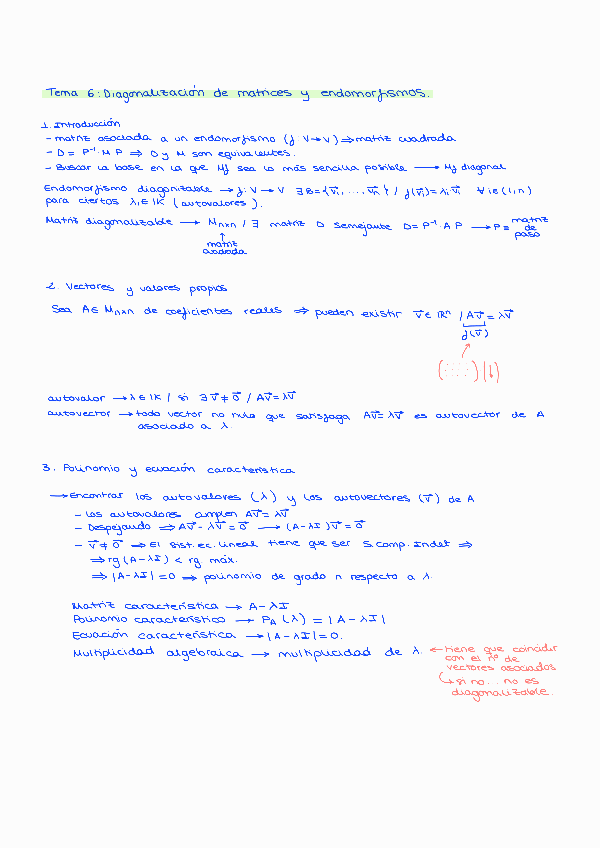 Tema 6: Diagonalización de matrices y endomorfismos.
1. Introducción
- matriz asociada a un endomorfismo (f: V→V) ⇒ matriz cuadrada
- D = P⁻¹·M·P ⇒ D y M son equivalentes.
- Buscar la base en la que Mf sea lo más sencilla posible → Mf diagonal
Endomorfismo diagonizable → f: V→V ∃ B={v⃗₁, ..., v⃗ₙ} / f(v⃗ᵢ)=λᵢv⃗ᵢ ∀ i∈(1,n)
para ciertos λᵢ ∈ IK (autovalores).
Matriz diagonalizable → Mₙₓₙ / ∃ matriz D semejante D=P⁻¹·A·P → P ≡ matriz de paso
↑
matriz cuadrada
2. Vectores y valores propios
Sea A ∈ Mₙₓₙ de coeficientes reales ⇒ pueden existir v⃗ ∈ ℝⁿ / Av⃗ = λv⃗
f(v⃗)
autovalor → λ ∈ IK / si ∃ v⃗ ≠ 0⃗ / Av⃗ = λv⃗
autovector → todo vector no nulo que satisfaga Av⃗ = λv⃗ es autovector de A
asociado a λ.
3. Polinomio y ecuación característica
→ Encontrar los autovalores (λ) y los autovectores (v⃗) de A
- Los autovalores cumplen Av⃗ = λv⃗
- Despejando ⇒ Av⃗ - λv⃗ = 0⃗ → (A-λI)v⃗ = 0⃗
- v⃗ ≠ 0⃗ ⇒ El sist. ec. lineal tiene que ser S.comp. Indet ⇒
⇒ rg(A-λI) < rg máx.
⇒ |A-λI| = 0 → polinomio de grado n respecto a λ.
Matriz característica → A-λI
Polinomio característico → P_A(λ) = |A-λI|
Ecuación característica → |A-λI| = 0.
Multiplicidad algebraica → multiplicidad de λ. ← tiene que coincidir
con el nº de
vectores asociados
↳ si no... no es
diagonalizable.